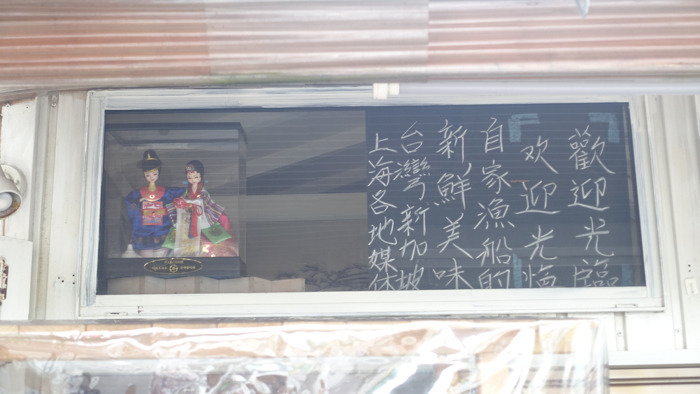 歡迎光臨
欢迎光临
自家漁船的
新鮮美味
台灣新加坡
上海各地媒体